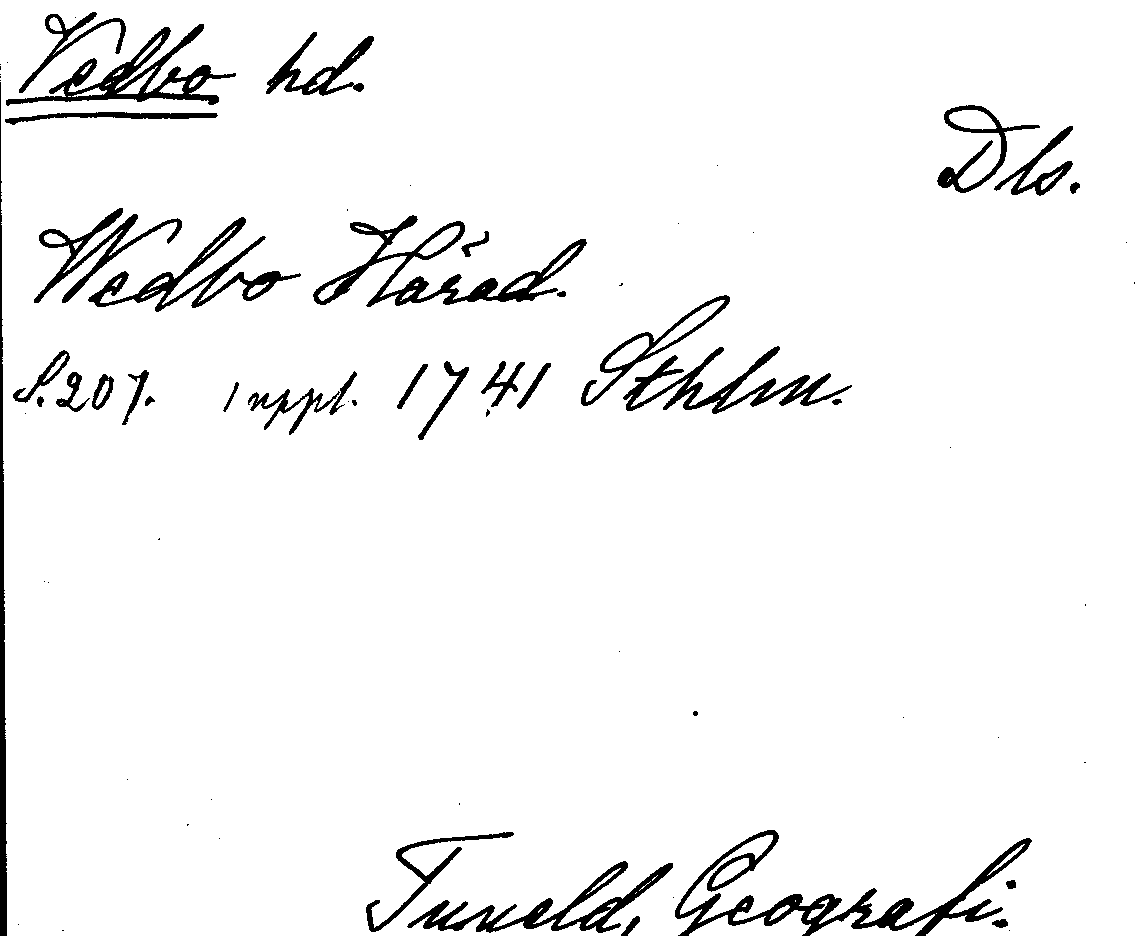 Vedbo hd.
Dls.
Wedbo Härad.
S. 207. 1 uppl. 1741 Sthlm.
Tuneld, Geografi.